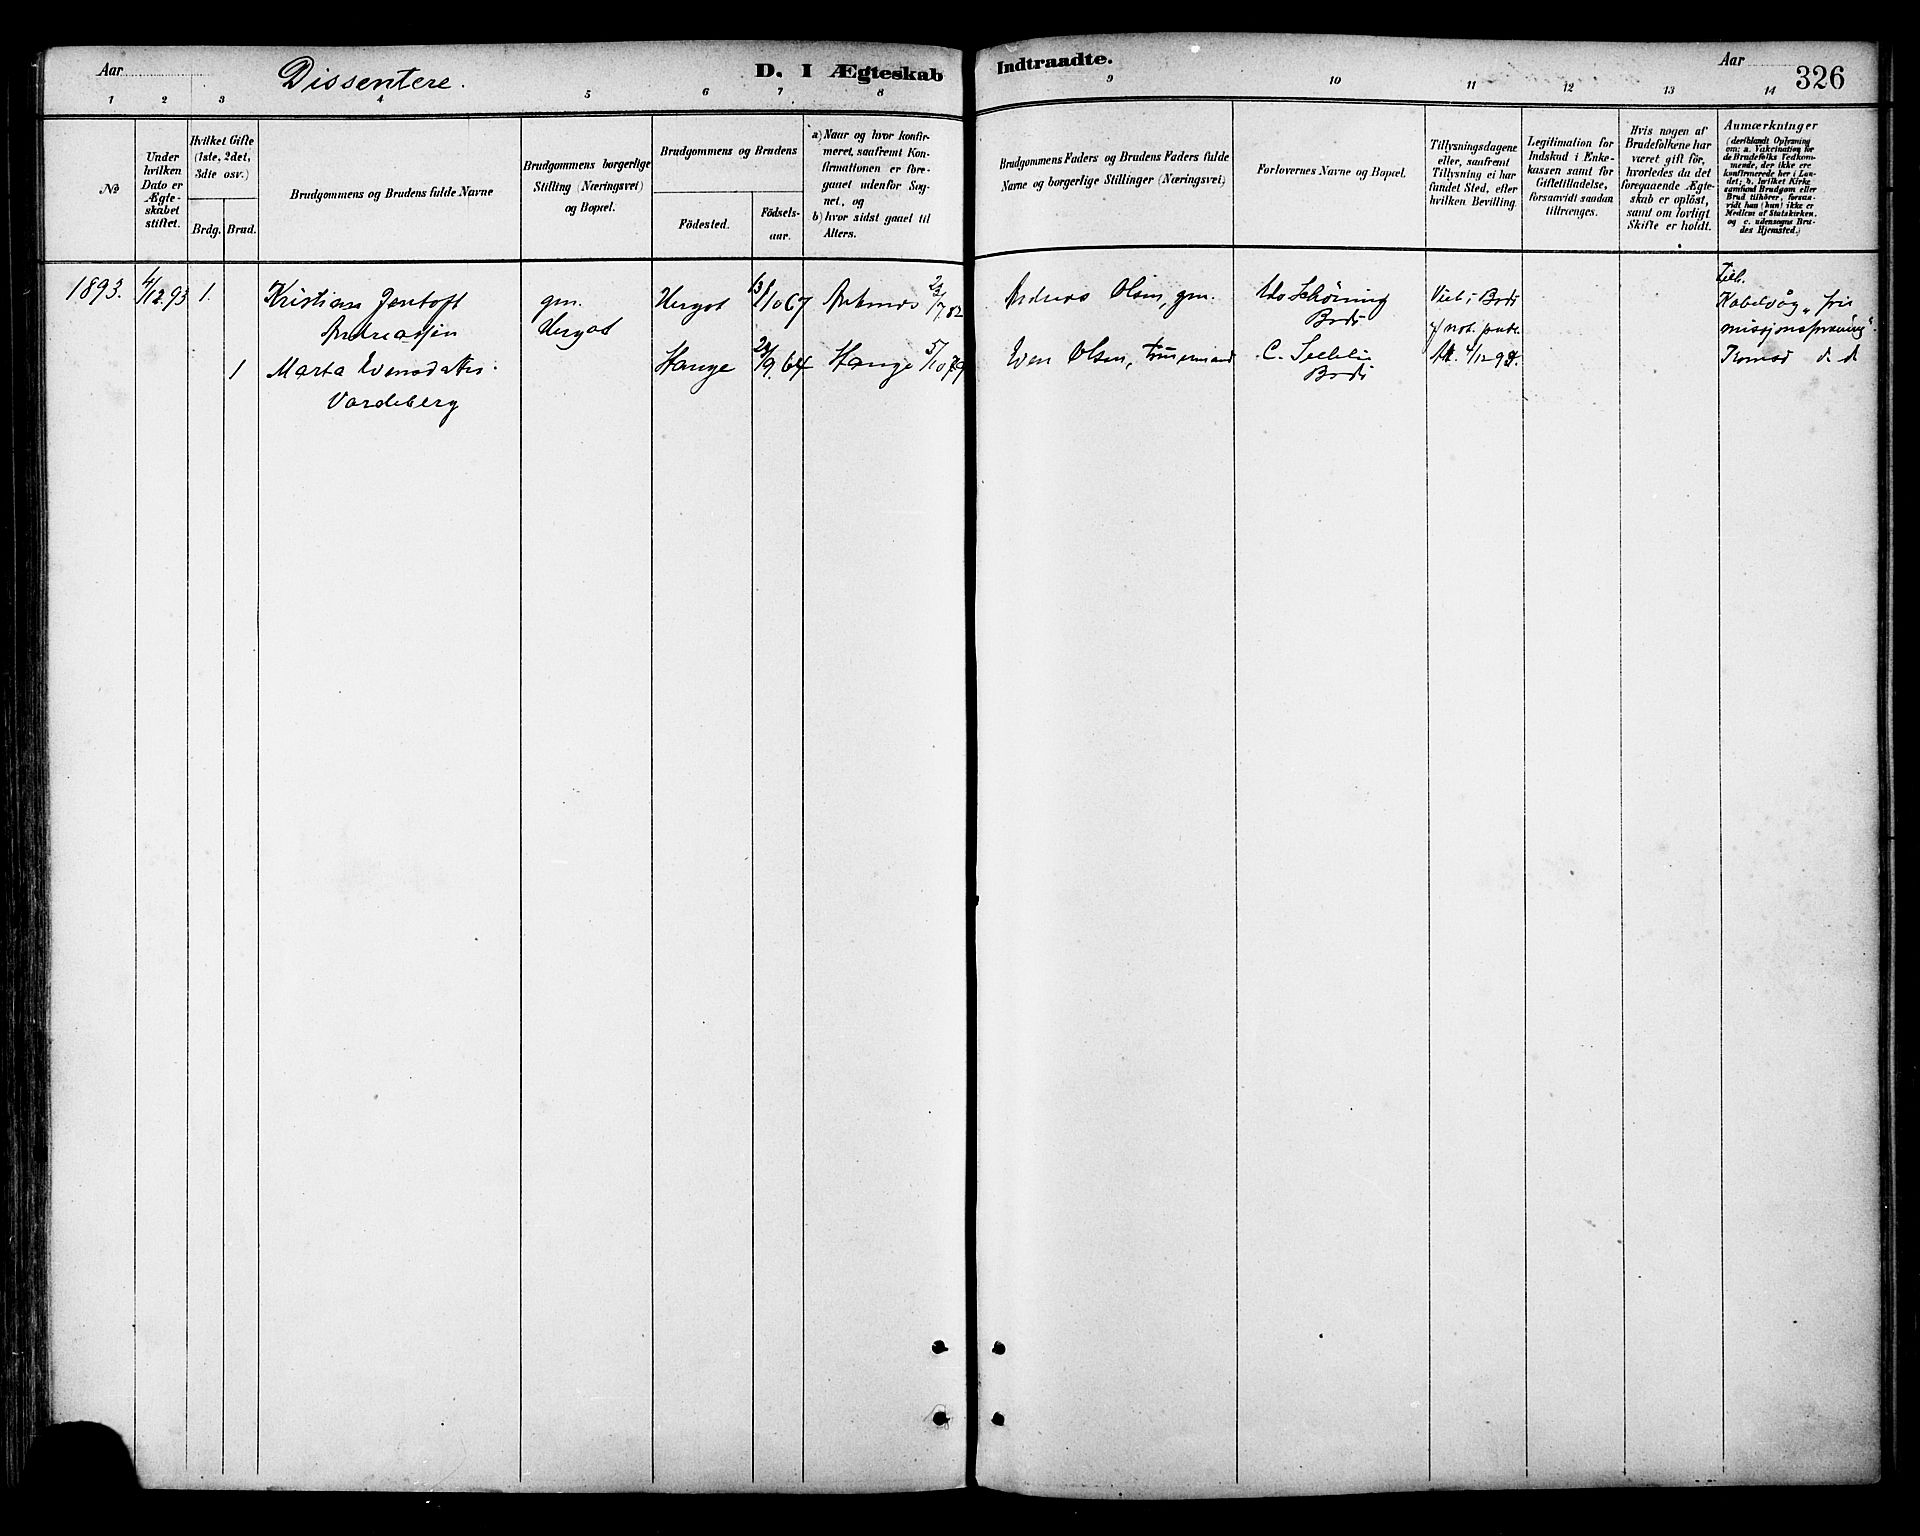 Aar
Dissentere.
D. I Ægteskab
Indtraadte.
Aar
326
1 2 3 4 5 6 7 8 9 10 11 12 13 14
No
Under hvilken Dato er Ægteskabet stiftet.
Hvilket Gifte (1ste, 2det, 3dte osv.)
Brdg. Brud.
Brudgommens og Brudens fulde Navne
Brudgommens borgerlige Stilling (Næringsvei) og Bopæl.
Brudgommens og Brudens
Födested.
Födselsaar.
a) Naar og hvor konfirmeret, saafremt Konfirmationen er foregaaet udenfor Sognet, og
b) hvor sidst gaaet til Alters.
Brudgommens Faders og Brudens Faders fulde Navne og borgerlige Stillinger (Næringsvei)
Forlovernes Navne og Bopæl.
Tillysningsdagene eller, saafremt Tillysning ei har fundet Sted, efter hvilken Bevilling.
Legitimation for Indskud i Enkekassen samt for Giftetilladelse, forsaavidt saadan tiltrænges.
Hvis nogen af Brudefolkene har været gift för, hvorledes da det foregaaende Ægteskab er oplöst, samt om lovligt Skifte er holdt.
Anmærkninger (deriblandt Oplysning om: a. Vakcination for de Brudefolks Vedkommende, der ikke ere konfirmerede her i Landet; b. hvilket Kirkesamfund Brudgom eller Brud tilhörer, forsaavidt han (hun) ikke er Medlem af Statskirken, og c. udensogns Brudes Hjemsted.)
1893. 4/12 93 1. Kristian Jentoft
Andreassen
gm.
Hergot
Hergot 13/10 67
7.82
Andreas Olsen, gm.
Schöning
Bodö
Viet i Bodö
af not. publ.
4/12 93.
Kabelvåg „fri
missjonsforening".
1 Marta Evensdatter
Vardeberg
Hauge 28/9. 64 Hauge 5/10 79
Even Olsen,
C.
Bodö
Tromsö d. d